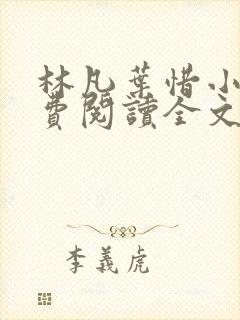 林凡葉惜小
費閱讀全文
李義虎